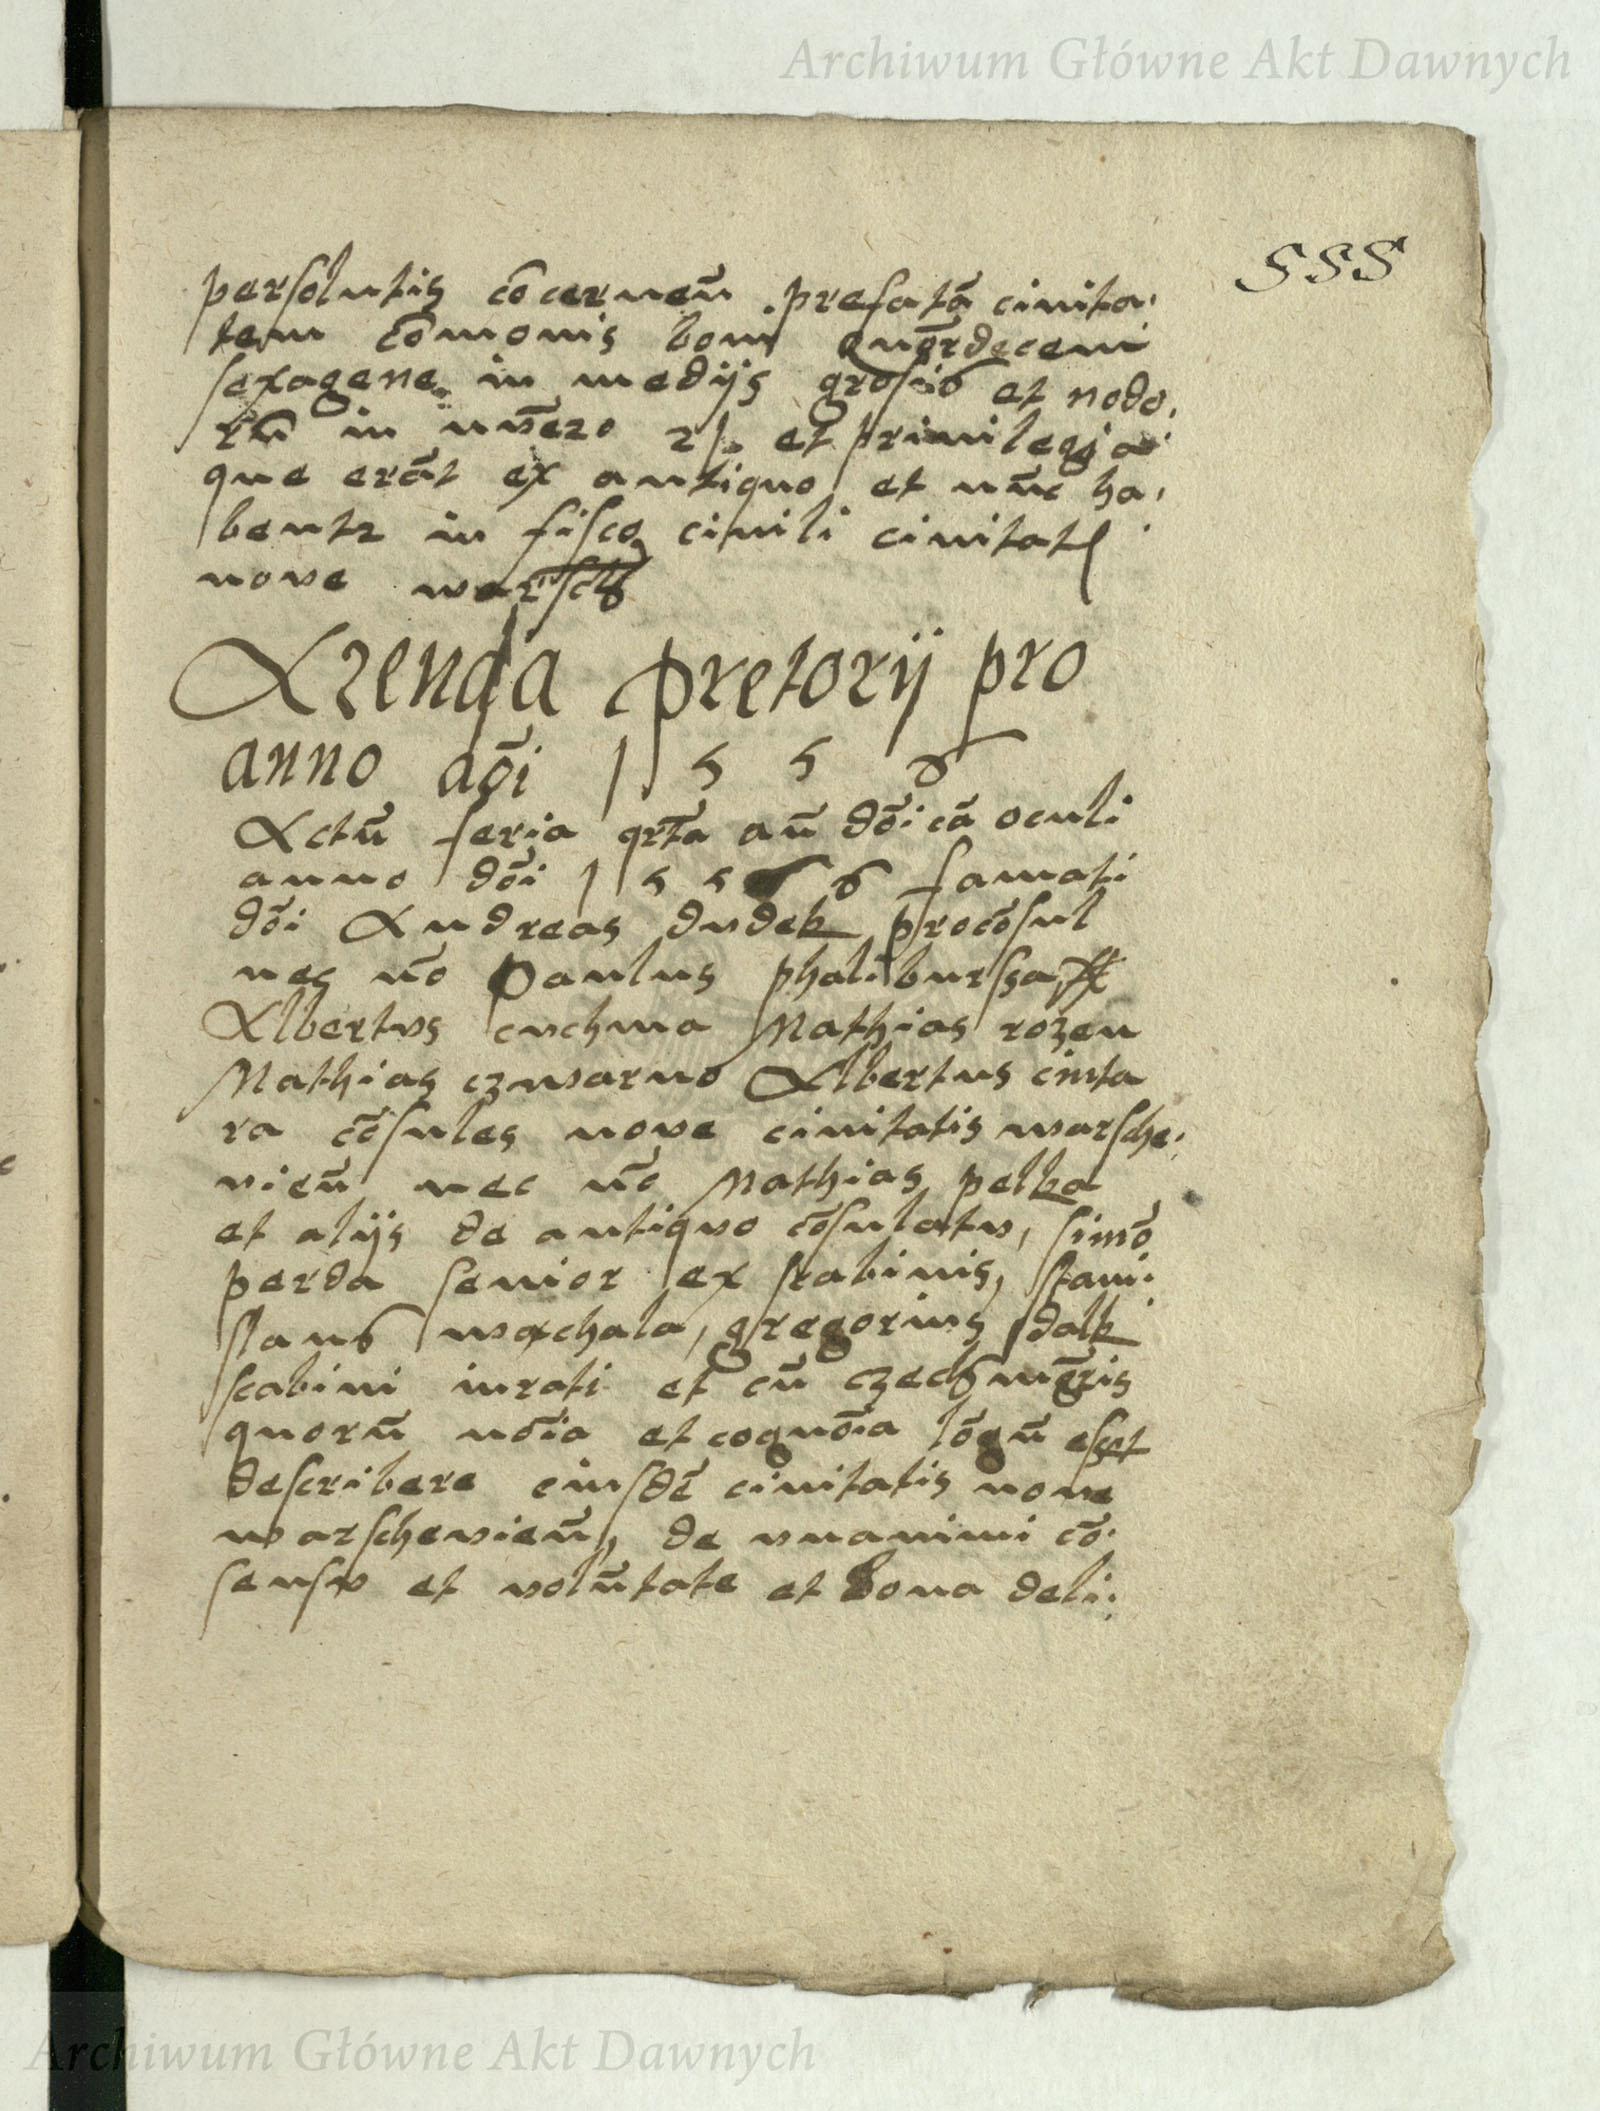 Archiwum Główne Akt Dawnych
555
persolutis cōcerneñ prefatā civita-
tem cōmonis boni quōrdecem
sexagene in medijs grosis et nodo-
rū in nūero et privilegia
que erāt ex antiquo et nūc ha-
bentr in fisco civili civitatis
nove warsch
Arenda pretorij pro
anno dōi 1556
Actū feria qrta añ dōicā oculi
anno dōi 1556 famati
dōi Andreas dudek procōsul
nec nō paulus phalibursza
Albertvs cvchma Mathias rozen
Mathias czwarno Albertus civta
ra cōsules nove civitatis warsche-
vieñ nec nō Mathias pelka
et alijs de antiqvo cōsulatv, simō
perda senior ex scabinis, stani-
slaus wachala, gregorius dalk
scabini iurati et cū czechmr̄is
quorū nōia et cognōia lōgū est
describere eiusdē civitatis nove
warschevieñ, de vnanimi cō-
sensv et volūtate et bona deli-
Archiwum Główne Akt Dawnych